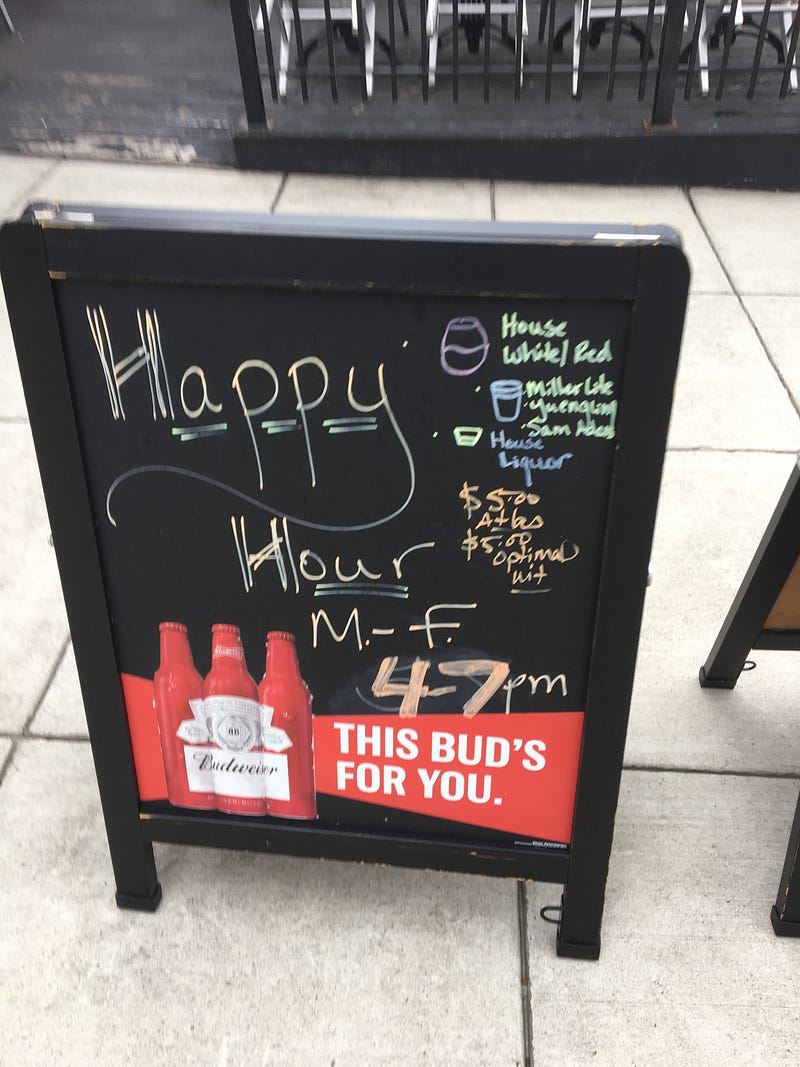 Happy
Hour
M.-F.
4-7pm
House
White/Red
Miller Lite
Yuengling
Sam Adams
House
Liquor
$5.00
Atlas
$5.00
Optimal
wit
Budweiser
THIS BUD'S
FOR YOU.